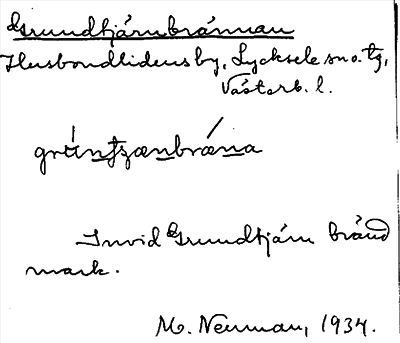 Grundtjärnbrännan
Husbondlidens by, Lycksele sn o. tg,
Västerb. l.
gruntjzænbræna
Invid Grundtjärn bränd
mark.
M. Neuman, 1934.